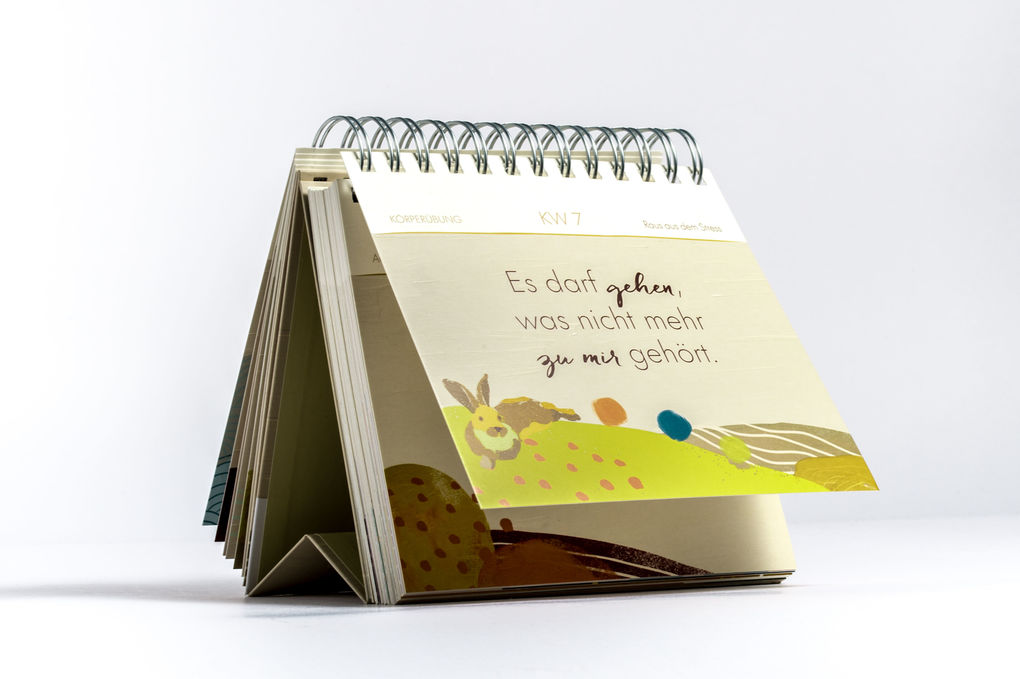 KÖRPERÜBUNG KW 7 Raus aus dem Stress
Es darf gehen,
was nicht mehr
zu mir gehört.